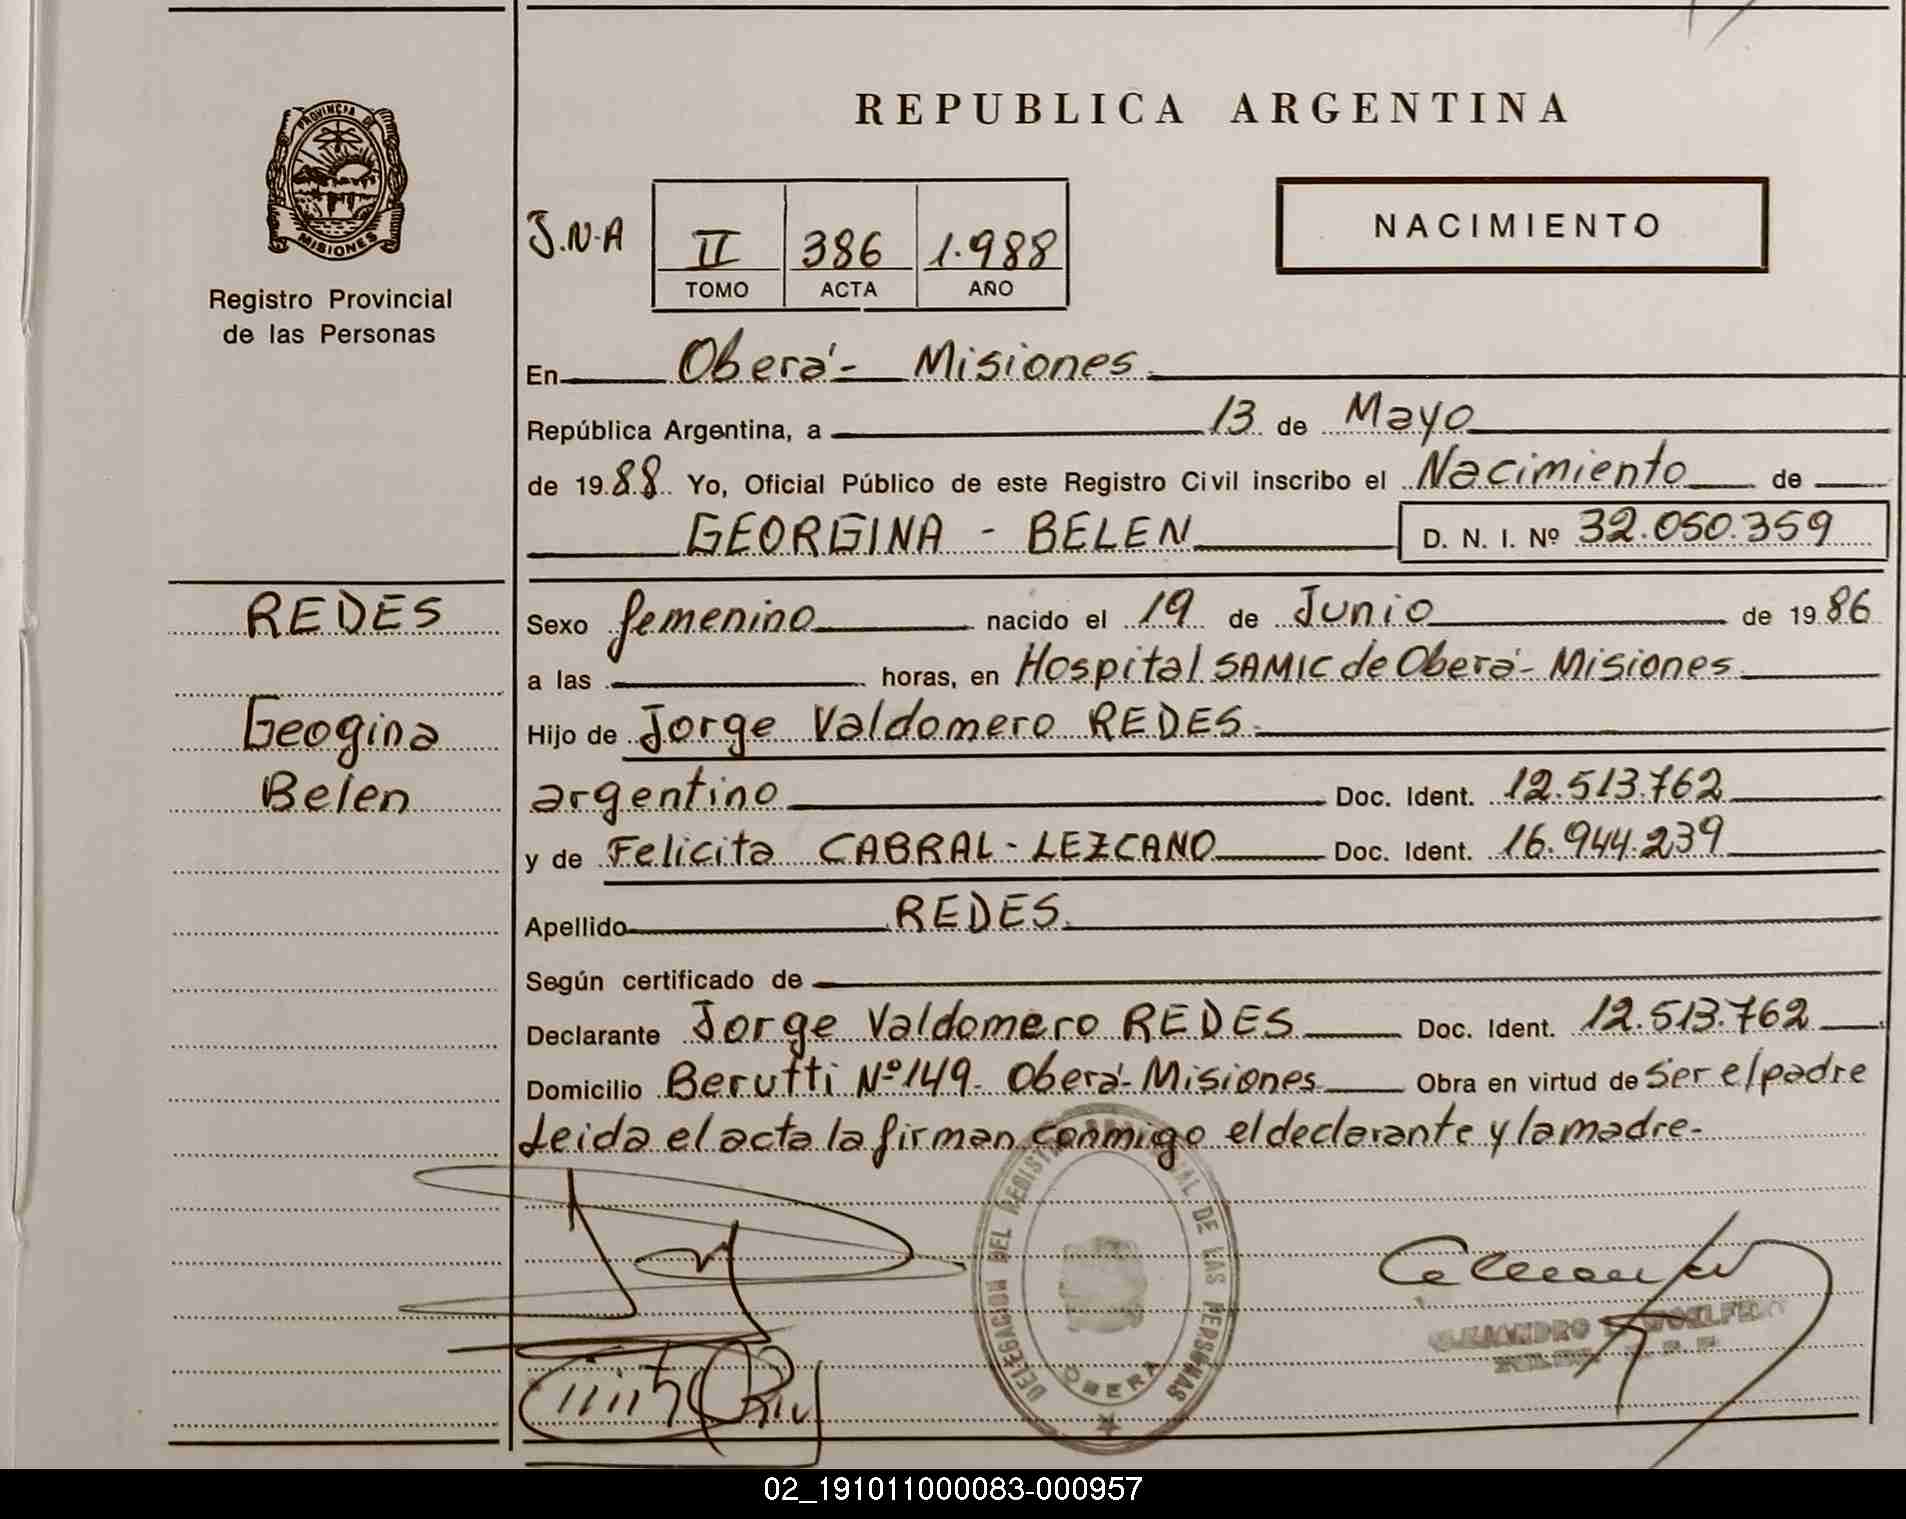 REPUBLICA ARGENTINA
PROVINCIA DE
MISIONES
Registro Provincial
de las Personas
J.N.A
II 386 1.988
TOMO ACTA AÑO
NACIMIENTO
En Oberá- Misiones
República Argentina, a 13 de Mayo
de 1988 Yo, Oficial Público de este Registro Civil inscribo el Nacimiento de
GEORGINA - BELEN D. N. I. Nº 32.050.359
REDES
Geogina
Belen
Sexo femenino nacido el 19 de Junio de 1986
a las horas, en Hospital SAMIC de Oberá- Misiones
Hijo de Jorge Valdomero REDES
argentino Doc. Ident. 12.513.762
y de Felicita CABRAL - LEZCANO Doc. Ident. 16.944.239
Apellido REDES
Según certificado de
Declarante Jorge Valdomero REDES Doc. Ident. 12.513.762
Domicilio Berutti Nº 149- Oberá- Misiones Obra en virtud de Ser el padre
Leida el acta la firman conmigo el declarante y la madre-
DELEGACION DEL REGISTRO PROVINCIAL DE LAS PERSONAS
OBERA
ALEJANDRO
02_191011000083-000957